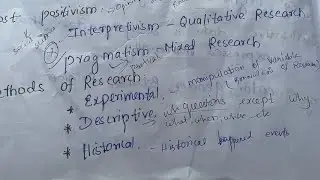 ost positivism -
Interpretivism - Qualitative Research
pragmatism - Mixed Research
ethods of Research
* Experimental. - manipulation of variable
* Descriptive, wh-questions except why.
what, when, where etc
* Historical. - Historical events